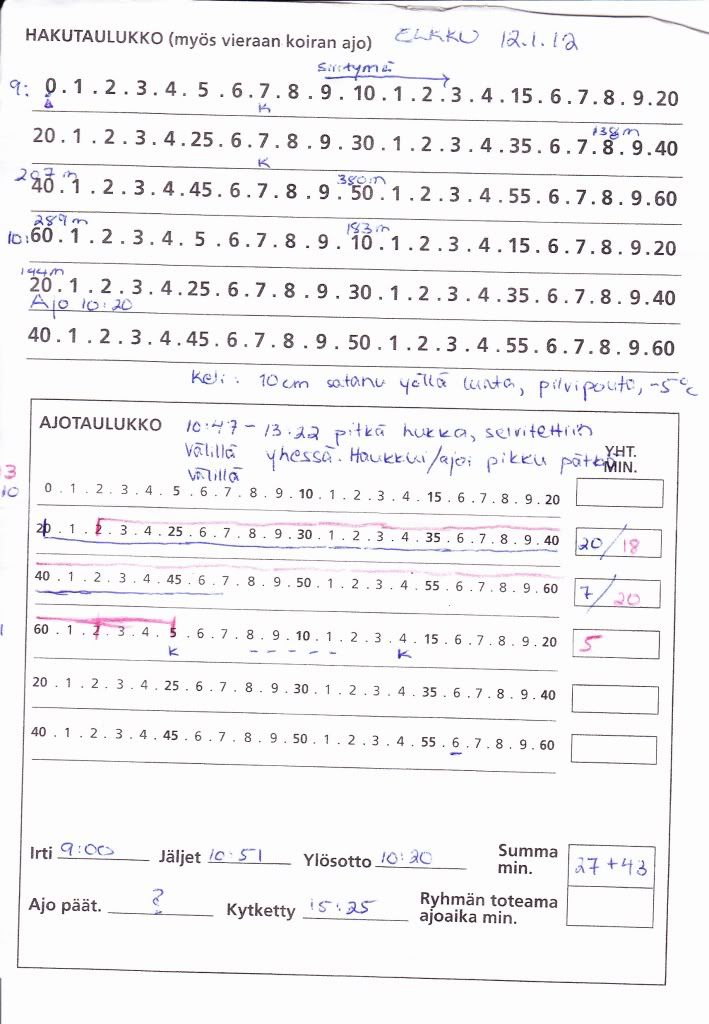 HAKUTAULUKKO (myös vieraan koiran ajo) ELKKU 12.1.12
Siirtymä
9: 0.1.2.3.4.5.6.7.8.9.10.1.2.3.4.15.6.7.8.9.20
K
138m
20.1.2.3.4.25.6.7.8.9.30.1.2.3.4.35.6.7.8.9.40
K
207m 380m
40.1.2.3.4.45.6.7.8.9.50.1.2.3.4.55.6.7.8.9.60
289m 183m
10: 60.1.2.3.4.5.6.7.8.9.10.1.2.3.4.15.6.7.8.9.20
144m
20.1.2.3.4.25.6.7.8.9.30.1.2.3.4.35.6.7.8.9.40
Ajo 10:20
40.1.2.3.4.45.6.7.8.9.50.1.2.3.4.55.6.7.8.9.60
Keli: 10cm satanu yöllä lunta, pilvipouta, -5°C
AJOTAULUKKO 10:47 - 13:22 pitkä hukka, selvitettiin
välillä yhessä. Haukkui/ajoi pikku pätkiä
välillä
YHT.
MIN.
13
10
0.1.2.3.4.5.6.7.8.9.10.1.2.3.4.15.6.7.8.9.20
20.1.2.3.4.25.6.7.8.9.30.1.2.3.4.35.6.7.8.9.40 20/18
40.1.2.3.4.45.6.7.8.9.50.1.2.3.4.55.6.7.8.9.60 7/20
60.1.2.3.4.5.6.7.8.9.10.1.2.3.4.15.6.7.8.9.20 5
K K
20.1.2.3.4.25.6.7.8.9.30.1.2.3.4.35.6.7.8.9.40
40.1.2.3.4.45.6.7.8.9.50.1.2.3.4.55.6.7.8.9.60
Irti 9:00 Jäljet 10:51 Ylösotto 10:20 Summa min. 27+43
Ajo päät. ? Kytketty 15:25 Ryhmän toteama ajoaika min.